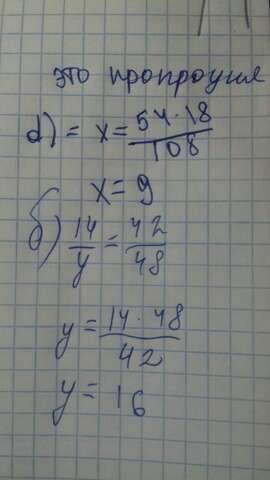 это пропроция
а) = x = 54·18 / 108
x = 9
б) 14/y = 42/48
y = 14·48 / 42
y = 16